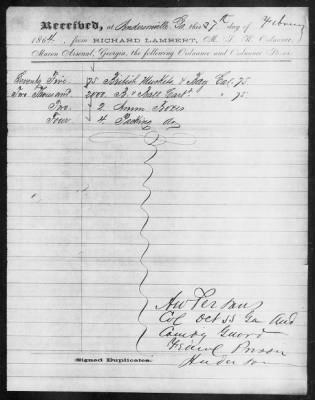 Received, at Andersonville, Ga, this 27th day of February
1864, from RICHARD LAMBERT, M. S. K. Ordnance,
Macon Arsenal, Georgia, the following Ordnance and Ordnance Stores.
Seventy Five 75 British Muskets & Bay Cal 75
Two Thousand 2000 B. & Ball Cart " 75.
Two 2 Boxes
Four 4 Packing do
A W Persons
Col 55 Ga And
Comdg Guard
Prison
Anderson
Signed Duplicates.